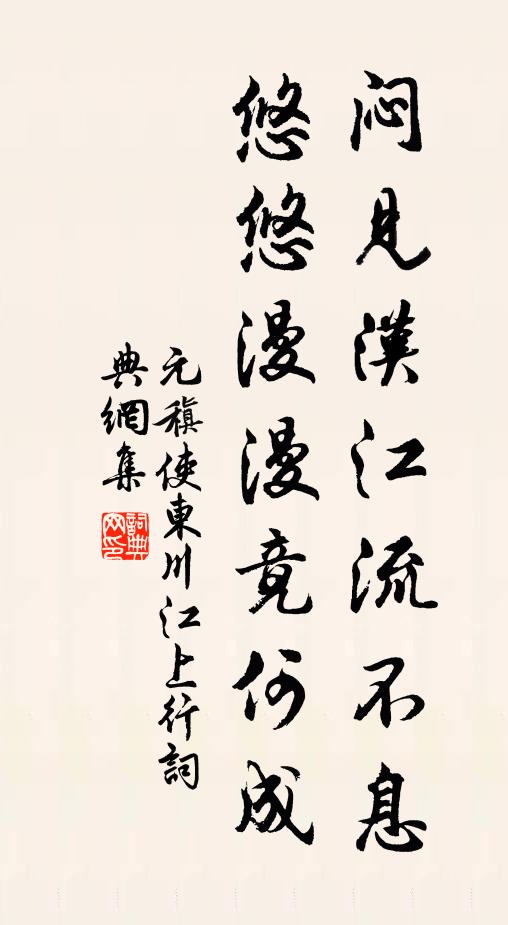 闷見漢江流不息
悠悠漫漫竟何成
元稹使東川江上行詞
典網集
詞典網印